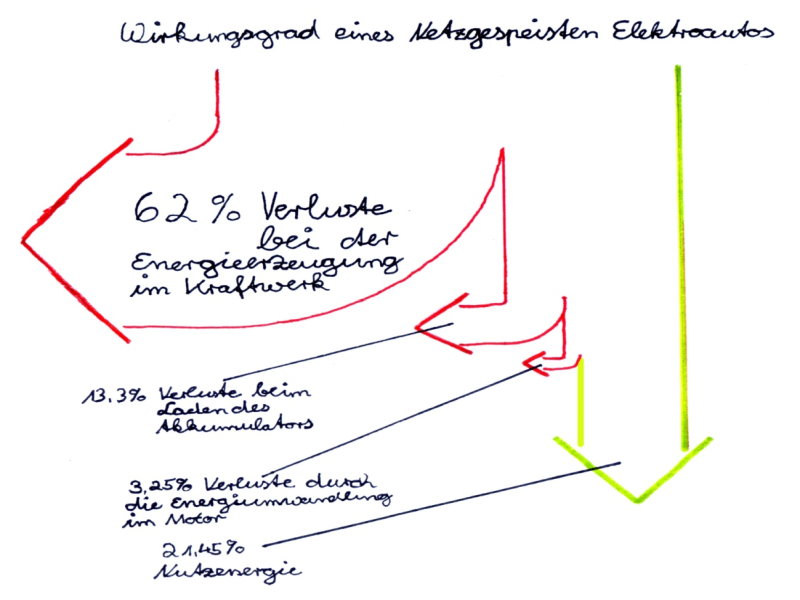 Wirkungsgrad eines Netzgespeisten Elektroautos
62% Verluste
bei der
Energieerzeugung
im Kraftwerk
13,3% Verluste beim
Laden des
Akkumulators
3,25% Verluste durch
die Energieumwandlung
im Motor
21,45%
Nutzenergie